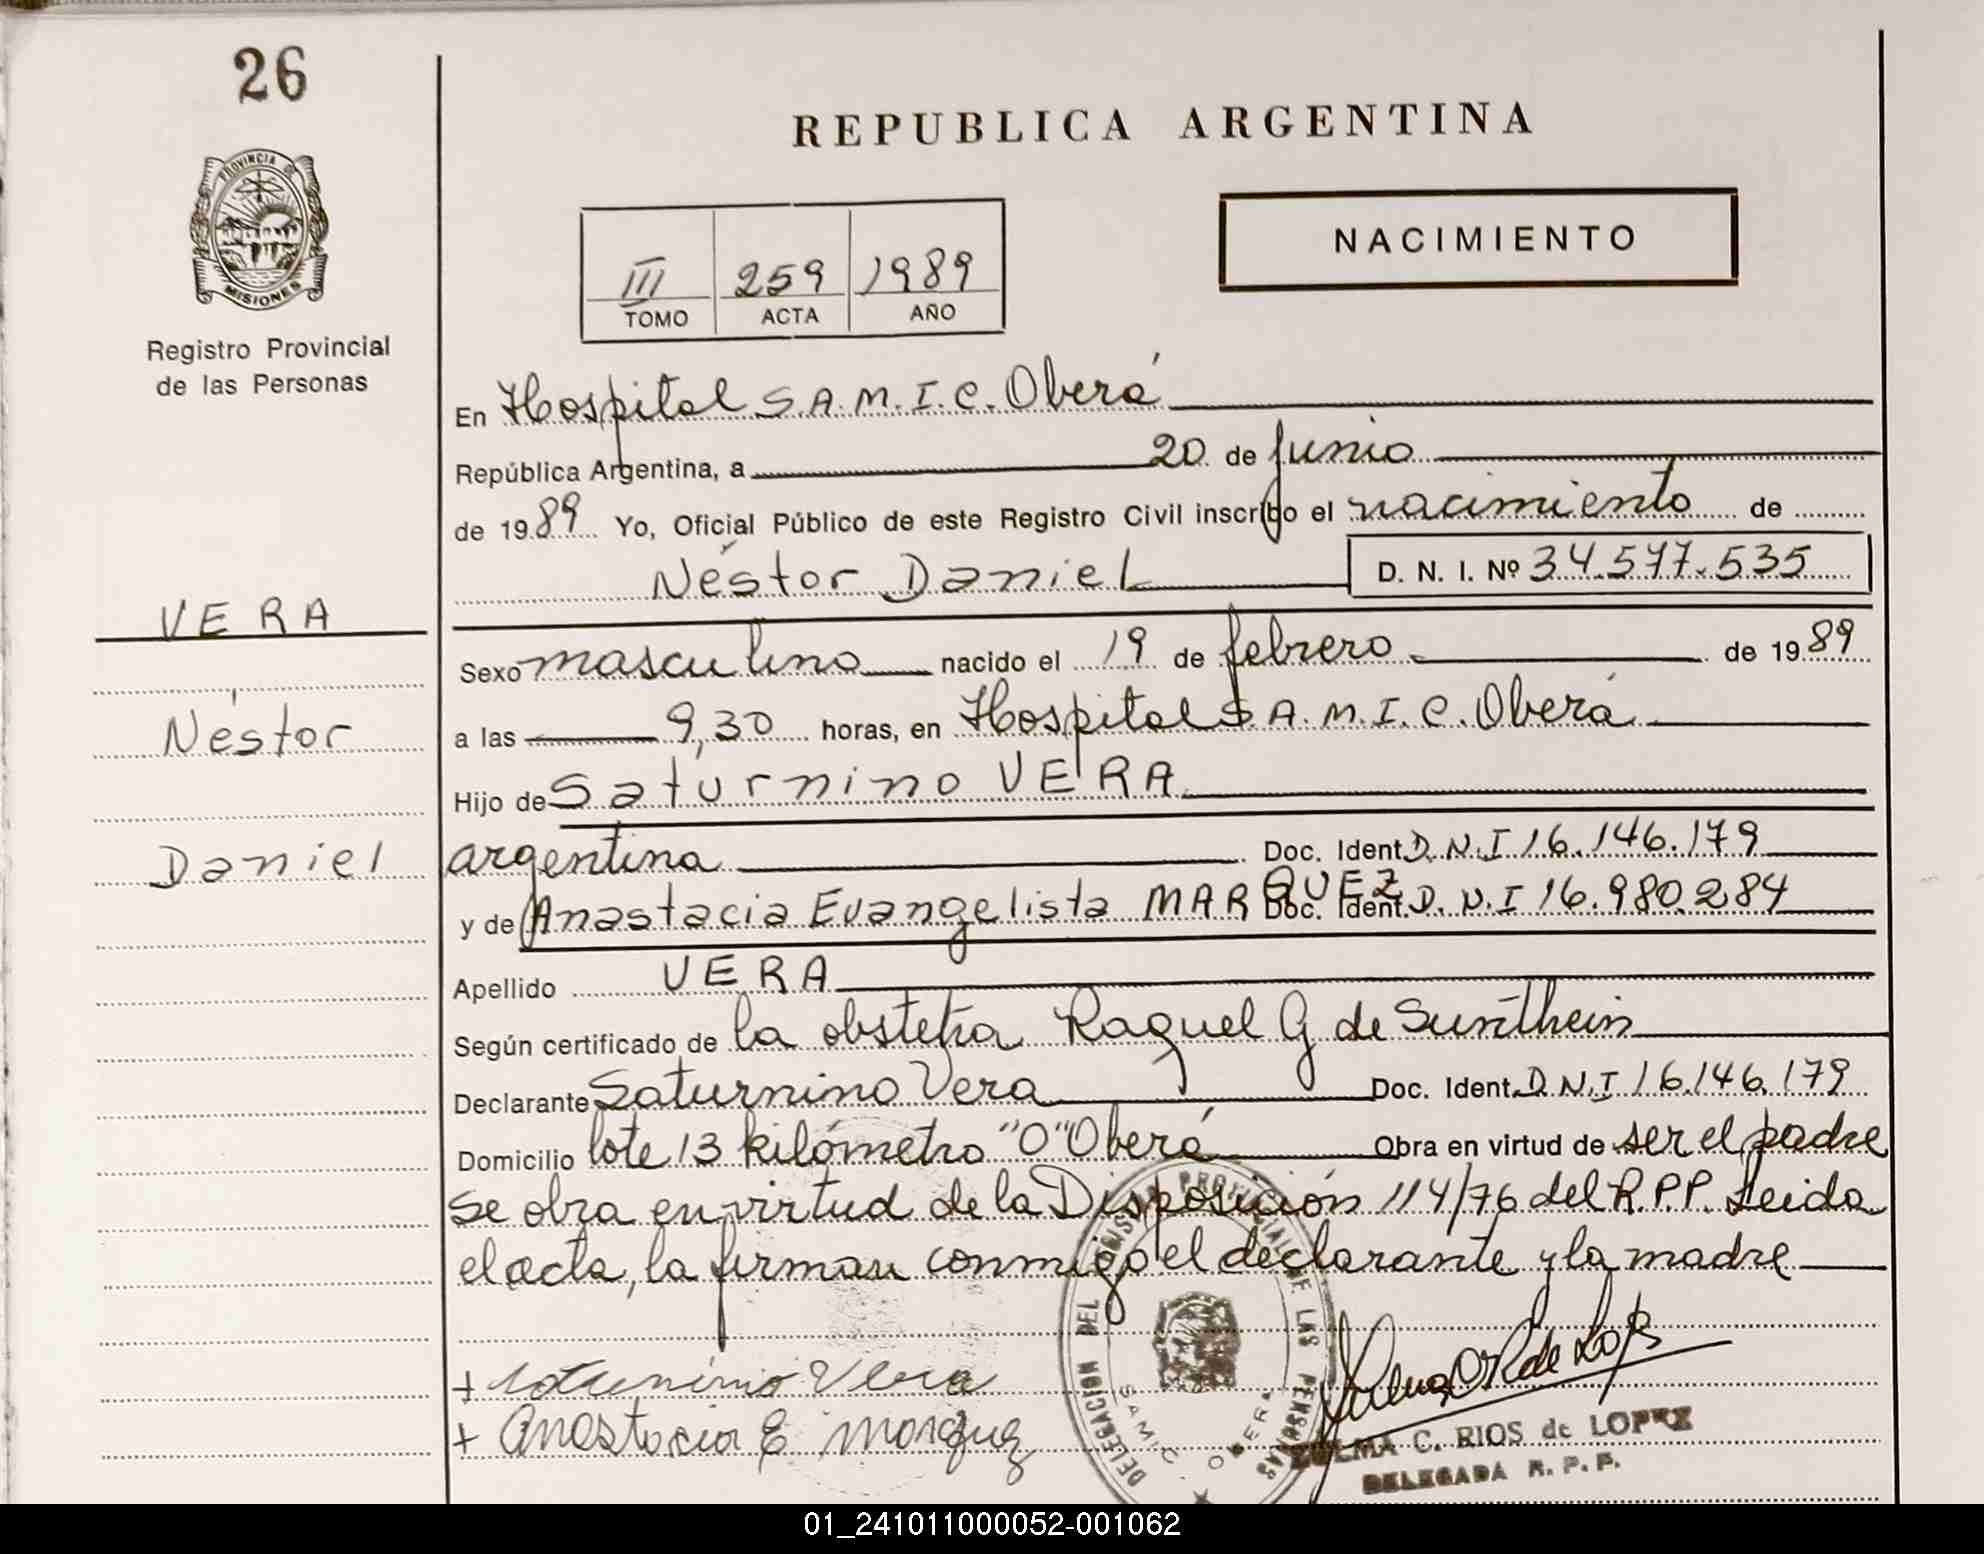 26
REPUBLICA ARGENTINA
PROVINCIA DE
MISIONES
Registro Provincial
de las Personas
NACIMIENTO
III 259 1989
TOMO ACTA AÑO
En Hospital S.A.M.I.C. Oberá
República Argentina, a 20 de junio
de 1989 Yo, Oficial Público de este Registro Civil inscribo el nacimiento de
Néstor Daniel D. N. I. Nº 34.577.535
VERA
Sexo masculino nacido el 19 de febrero de 1989
Néstor
a las 9,30 horas, en Hospital S.A.M.I.C. Oberá
Hijo de Saturnino VERA
Daniel
argentina Doc. Ident. D.N.I 16.146.179
y de Anastacia Evangelista MARQUEZ Doc. Ident. D.N.I 16.980.284
Apellido VERA
Según certificado de la obstetra Raquel G de
Declarante Saturnino Vera Doc. Ident. D.N.I 16.146.179
Domicilio lote 13 kilómetro "0" Oberá Obra en virtud de ser el padre
Se obra en virtud de la Disposición 114/76 del R.P.P. Leida
el acta, la firman conmigo el declarante y la madre
+ Saturnino Vera
+ Anastacia E Marquez
DELEGACION DEL REGISTRO PROVINCIAL DE LAS PERSONAS
SAMIC. OBERA
ZULMA C. RIOS de LOPEZ
DELEGADA R. P. P.
01_241011000052-001062